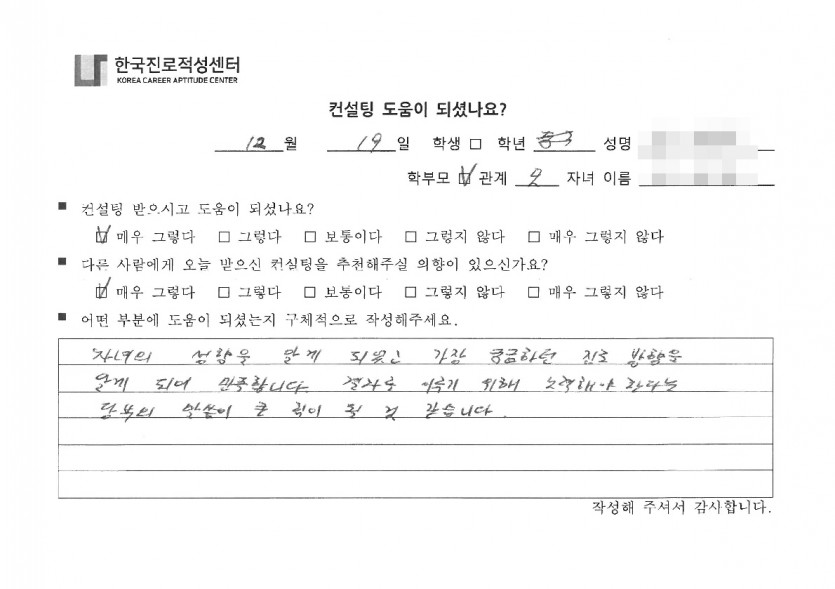 한국진로적성센터
KOREA CAREER APTITUDE CENTER
컨설팅 도움이 되셨나요?
12 월 19 일 학생 □ 학년 중3 성명
학부모 ☑ 관계 모 자녀 이름
■ 컨설팅 받으시고 도움이 되셨나요?
☑ 매우 그렇다 □ 그렇다 □ 보통이다 □ 그렇지 않다 □ 매우 그렇지 않다
■ 다른 사람에게 오늘 받으신 컨설팅을 추천해주실 의향이 있으신가요?
☑ 매우 그렇다 □ 그렇다 □ 보통이다 □ 그렇지 않다 □ 매우 그렇지 않다
■ 어떤 부분에 도움이 되셨는지 구체적으로 작성해주세요.
자녀의 성향을 알게 되었고 가장 궁금하던 진로 방향을
알게 되어 만족합니다. 결과를 이루기 위해 노력해야 한다는
당부의 말씀이 큰 힘이 될 것 같습니다.
작성해 주셔서 감사합니다.